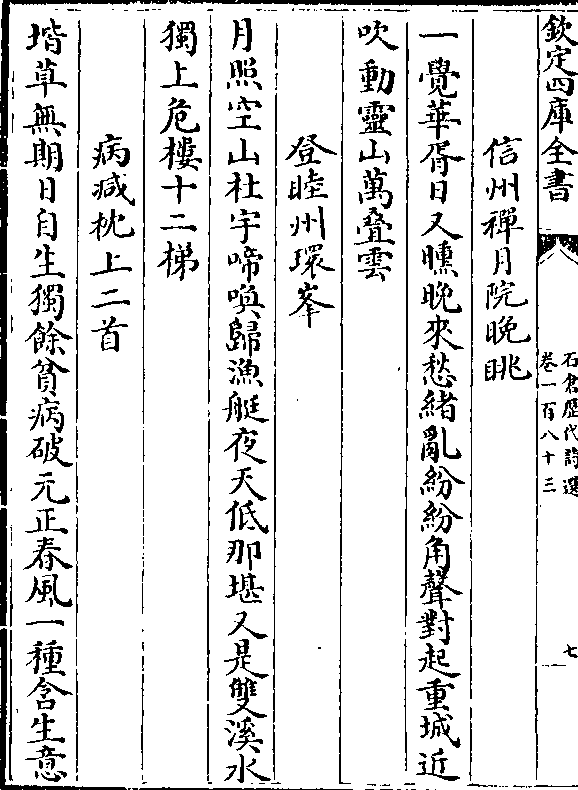 欽定四庫全書
石倉歷代詩選
卷一百八十三
七
信州禪月院晚眺
一覺華胥日又曛晚來愁緒亂紛紛角聲對起重城近
吹動靈山萬疊雲
登睦州環峯
月照空山杜宇啼喚歸漁艇夜天低那堪又是雙溪水
獨上危樓十二梯
病減枕上二首
堦草無期日自生獨餘貧病破元正春風一種含生意